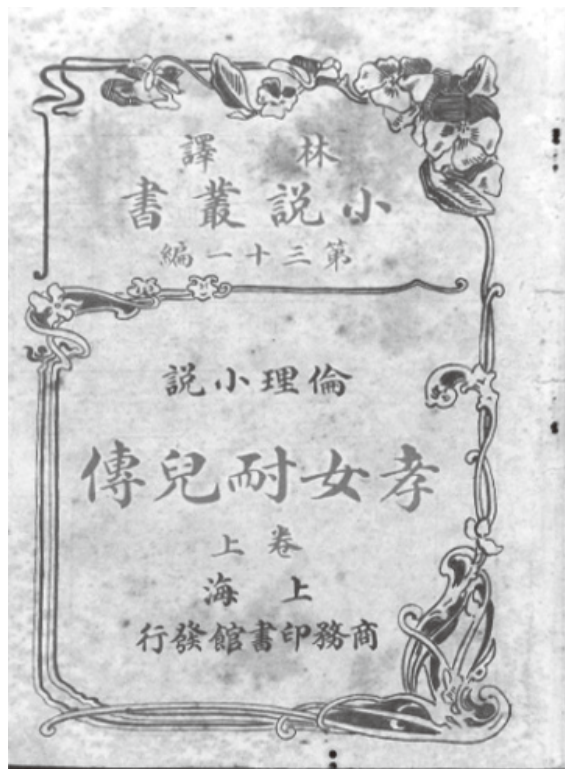 林譯
小說叢書
第三十一編
倫理小說
孝女耐兒傳
卷上
上海
商務印書館發行